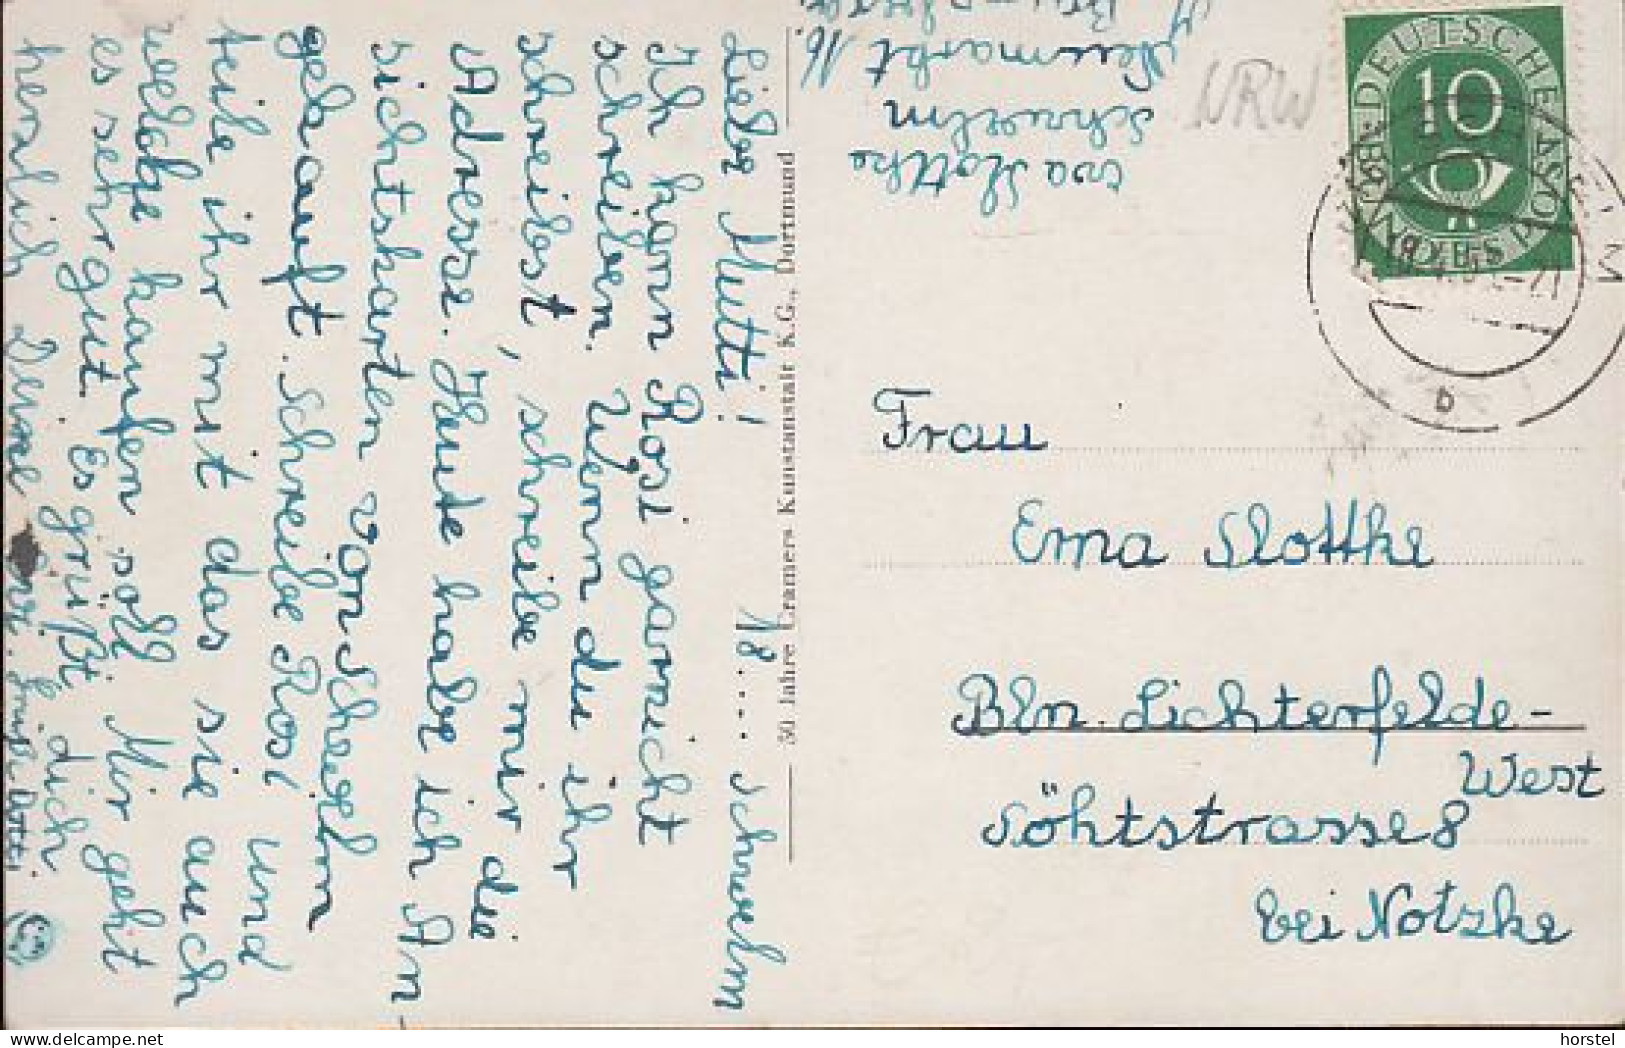 18..... Schwelm
Liebe Mutti!
Ich kann Rosi garnicht
schreiben. Wenn du ihr
schreibst, schreibe mir die
Adresse. Heute habe ich An
sichtskarten von Schwelm
gekauft. Schreibe Rosi und
teile ihr mit das sie auch
welche kaufen soll. Mir geht
es sehr gut. Es grüßt dich
herzlich Deine
50 Jahre Cramers Kunstanstalt K.G., Dortmund
Eva Slottke
Schwelm
Neumarkt 16.
NRW
DEUTSCHE POST
10
Frau
Erna Slottke
Bln. Lichterfelde-
West
Söhtstrasse 8
bei Notzke
b
horstel